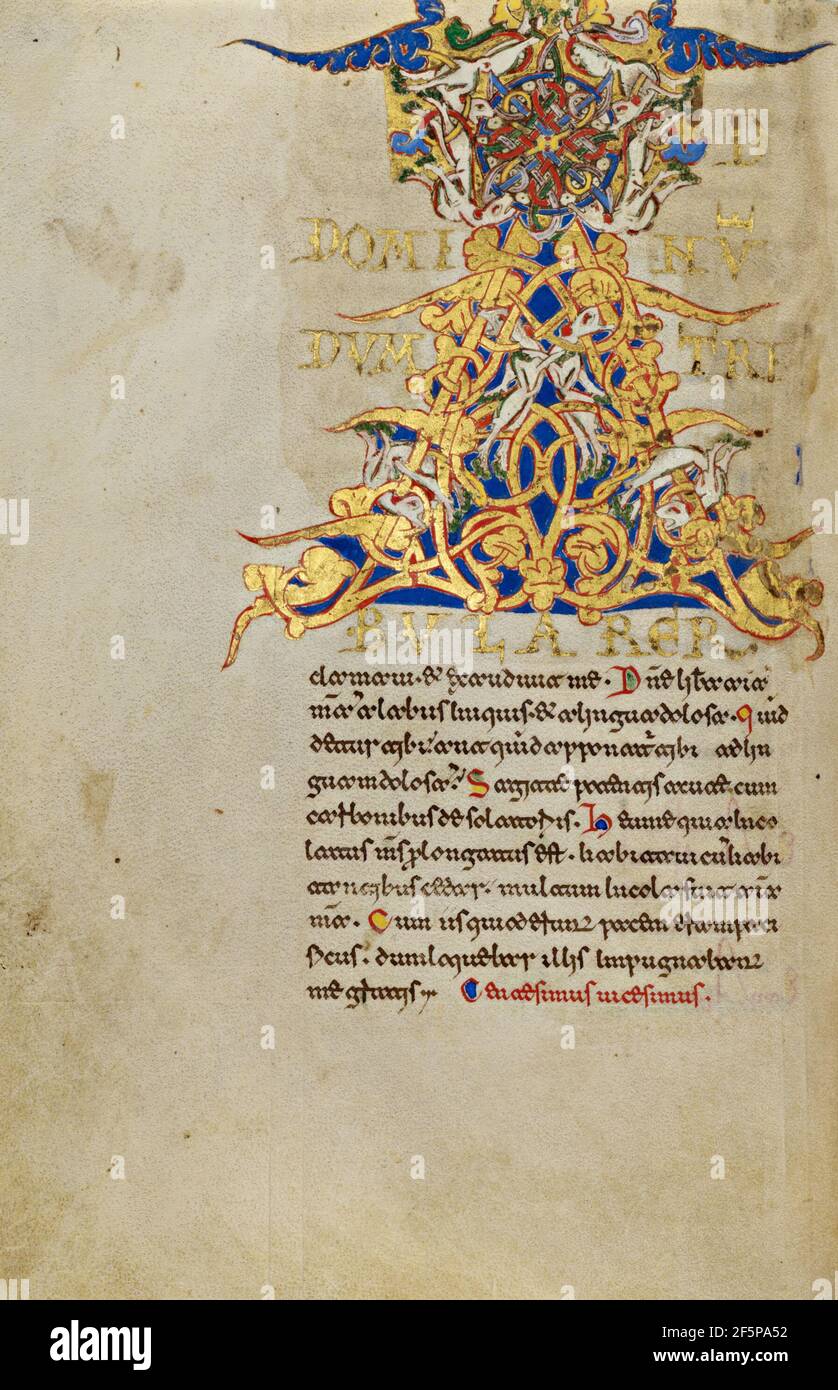 D
E
DOMI NV
DVM TRI
BVLARER
clamaui · & exaudiuit me · Dñe libera aīa
mēa a labiis iniquis · & a lingua dolosa · Quid
detur tibi aut quid apponatur tibi ad lin
guam dolosa · Sagitte potentis acute cum
carbonibus desolatoriis · Heu me quia inco
latus ms prolongatus est · habitaui cū habi
tantibus cedar · multum incola fuit aīa
mēa · Cum iis qui oderunt pacem eram paci
ficus · dum loquebar illis impugnabant
me gratis Centesimus uicesimus ·
alamy
Image ID: 2F5PA52
www.alamy.com